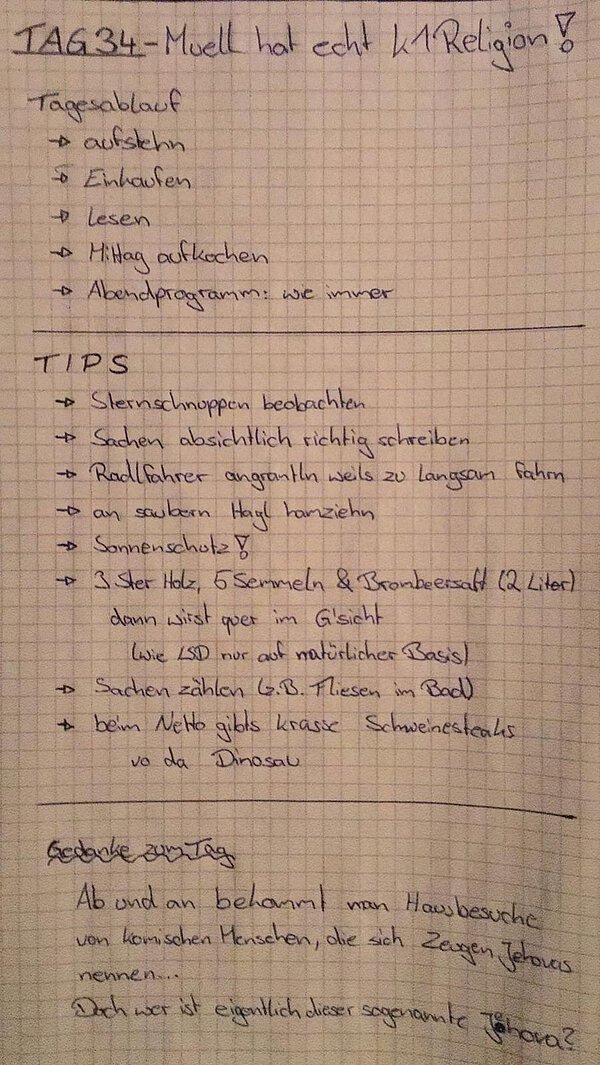 TAG 34 - Muell hat echt k1 Religion!
Tagesablauf
→ aufstehn
→ Einkaufen
→ lesen
→ Mittag aufkochen
→ Abendprogramm: wie immer
TIPS
→ Sternschnuppen beobachten
→ Sachen absichtlich richtig schreiben
→ Radlfahrer angrantln weils zu langsam fahrn
→ an saubern Hagl hamziehn
→ Sonnenschutz!
→ 3 Ster Holz, 5 Semmeln & Brombeersaft (2 Liter)
dann wirst quer im G'sicht
(wie LSD nur auf natürlicher Basis)
→ Sachen zählen (z.B. Fliesen im Bad)
→ beim Netto gibts krasse Schweinesteaks
vo da Dinosau
Gedanke zum Tag
Ab und an bekommt man Hausbesuche
von komischen Menschen, die sich Zeugen Jehovas
nennen...
Doch wer ist eigentlich dieser sogenannte Jehova?